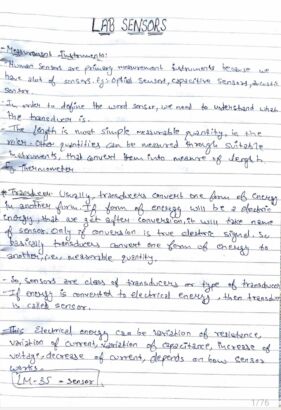 LAB SENSORS
- Measurement Instruments:
- Human Sensors are primary measurement instruments because we
have alot of sensors. Eg: Optical sensors, capacitive sensors, acoustic
sensor.
- In order to define the word sensor, we need to understand what
the transducer is.
- The length is most simple measurable quantity, in the
meter. Other quantities can be measured through suitable
instruments, that convert them into measure of length.
Eg. Thermometer
* Transducer: Usually, transducers convert one form of energy
in another form. If form of energy will be a electric
energy, that we get after conversion, it will take name
of sensor. Only if conversion is true electric signal. So
basically transducers convert one form of energy to
another, i.e., measurable quantity.
- So, sensors are class of transducers or type of transducer
- If energy is converted to electrical energy, then transducer
is called sensor.
Electrical energy can be variation of resistance,
variation of current, variation of capacitance, increase of
voltage, decrease of current, depends on how sensor
works.
LM-35 - sensor
1/76